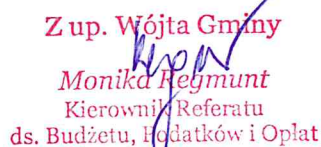 Z up. Wójta Gminy
Monika Regmunt
Kierownik Referatu
ds. Budżetu, Podatków i Opłat